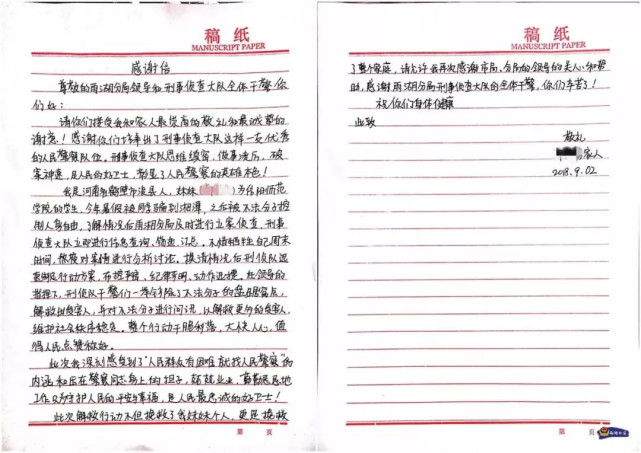 稿纸
MANUSCRIPT PAPER
感谢信
尊敬的雨湖分局领导和刑事侦查大队全体干警你
们好：
请你们接受我和家人最崇高的敬礼和最诚挚的
谢意！感谢你们培养出了刑事侦查大队这样一支优秀
的人民警察队伍。刑事侦查大队思维缜密，做事凌厉，破
案神速，是人民的好卫士，彰显了人民警察的英雄本色！
我是河南省鹤壁市浚县人，妹妹 为信阳师范
学院的学生，今年暑假被同学骗到湘潭，之后被不法分子控
制人身自由，了解情况后雨湖分局及时进行立案侦查，刑事
侦查大队立即进行信息查询、筛查、汇总。不惜牺牲自己周末
时间，积极对案情进行分析讨论。摸清情况后刑侦队迅
速制定行动方案，布控严密、纪律严明、动作迅捷。在领导的
指挥下，刑侦队干警们一举夺除了不法分子的盘踞窝点，
解救出受害人，并对不法分子进行问讯，以解救更多的受害人，
维护社会秩序稳定。整个行动干脆利落，大快人心，值
得人民点赞称好。
此次我深刻感受到了“人民群众有困难就找人民警察”的
内涵和压在警察同志身上的担子，兢兢业业，勤勤恳恳地
工作只为守护人民的平安与幸福，是人民最忠诚的好卫士！
此次解救行动不但挽救了我妹妹个人，更是挽救
第 页
稿纸
MANUSCRIPT PAPER
了整个家庭，请允许我再次感谢市局、分局的领导的关心和帮
助，感谢雨湖分局刑事侦查大队的全体干警，你们辛苦了！
祝你们身体健康
此致
敬礼
家人
2018.9.02
第 页